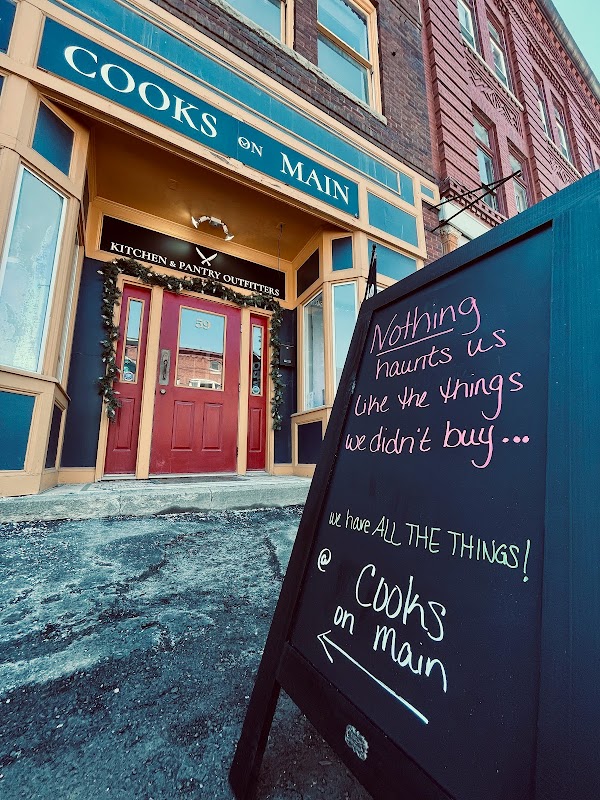 COOKS ON MAIN
KITCHEN & PANTRY OUTFITTERS
59
Nothing
haunts us
like the things
we didn't buy...
we have ALL THE THINGS!
@
Cooks
on main